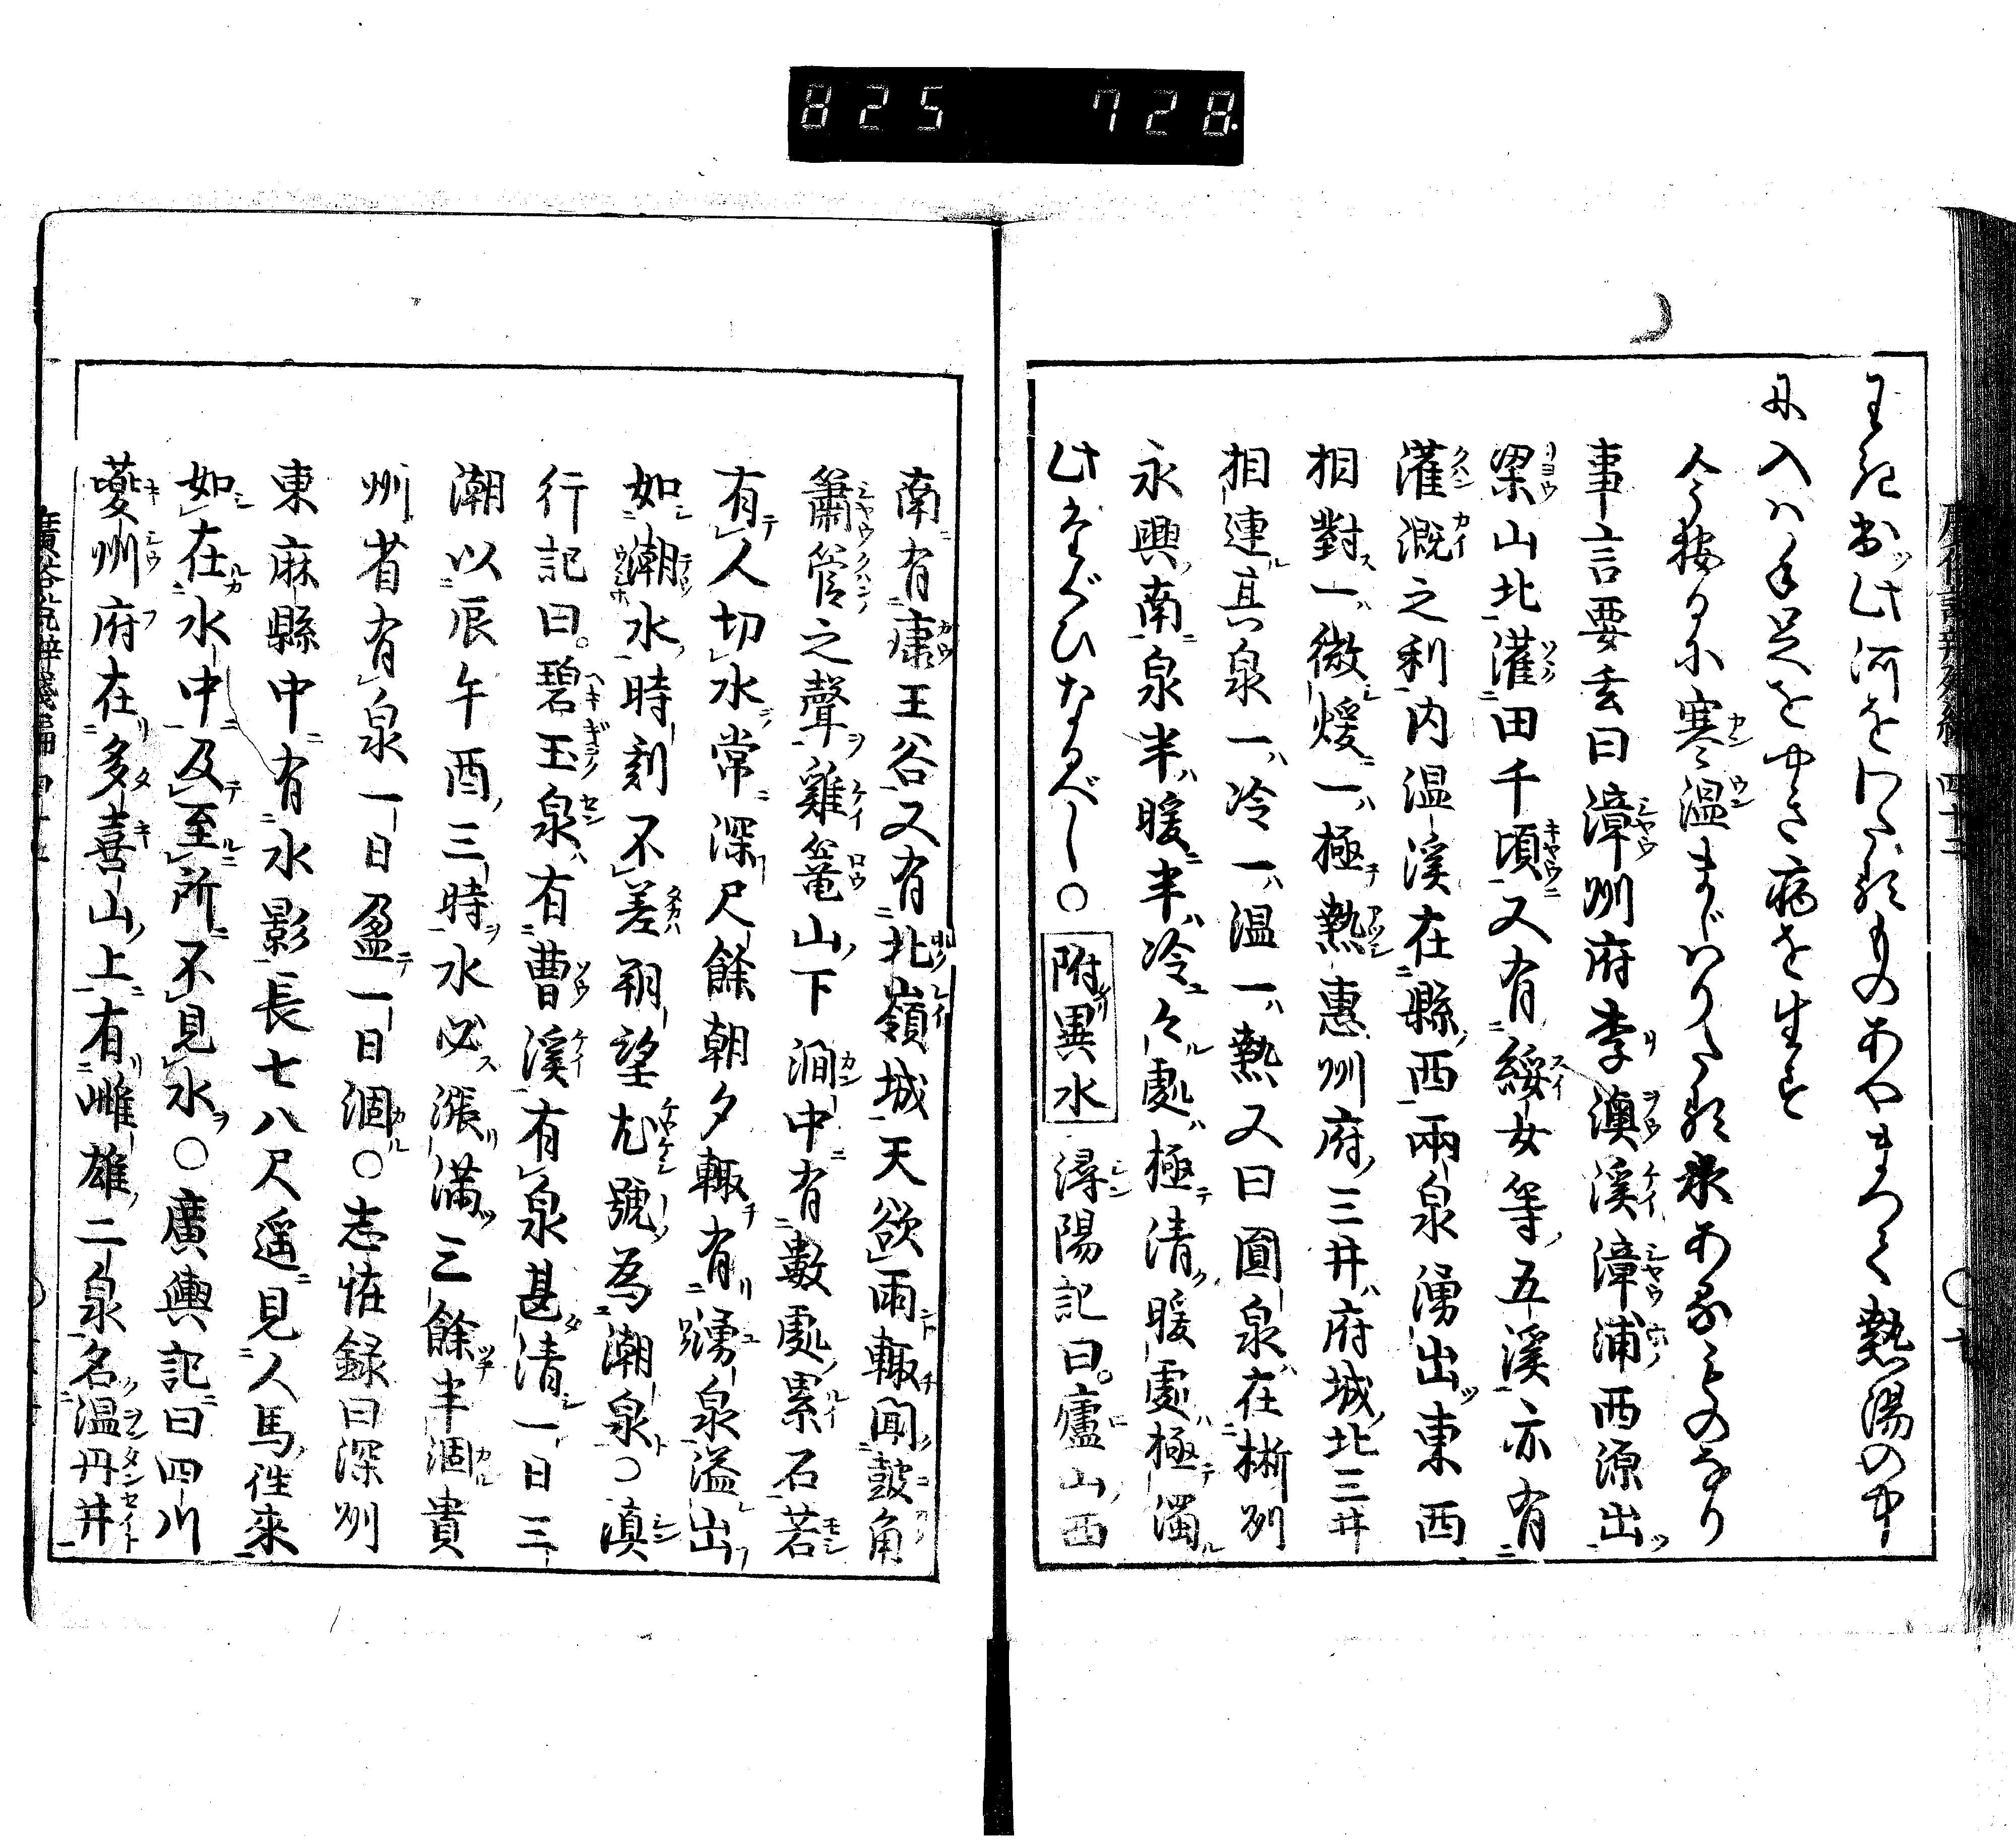 825 728.
わき出ツ此河をわたるものあやまつて熱湯の中
に入ハ手足をやき病を生ず
今按るに寒温まじハりたる水あるものなり
事言要玄曰漳州府李澳溪漳浦西源出
梁山北灌田千頃又有綏女等五溪亦有
灌漑之利内温溪在縣西兩泉湧出東西
相對一微煖一極熱惠州府三井府城北三井
相連其泉一冷一温一熱又曰圓泉在郴州
永興南泉半暖半冷々處極清暖處極濁
此たぐひなるべし○附異水潯陽記曰廬山西
南有康王谷又有北嶺城天欲雨輙聞鼓角
簫管之聲雞篭山下澗中有數處累石若
有人切水常深尺餘朝夕輙有踴泉溢出
如潮水時刻不差朔望尤號為潮泉○滇
行記曰碧玉泉有曹溪有泉甚清一日三
潮以辰午酉三時水必漲滿三餘半涸貴
州省有泉一日盈一日涸○志怪録曰深州
東麻縣中有水影長七八尺遥見人馬徃來
如在水中及至所不見水○廣輿記曰四川
夔州府在多喜山上有雌雄二泉名温丹井